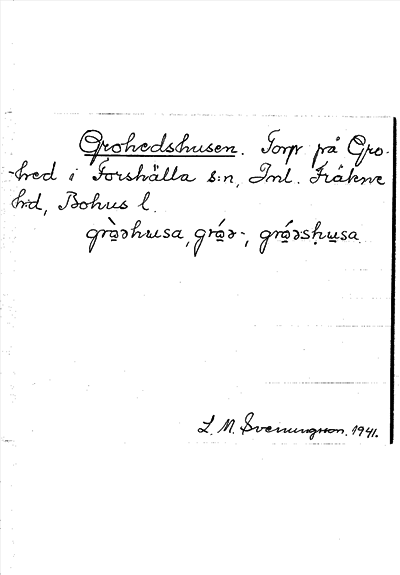 Grohedshusen. Torp på Gro-
-hed i Forshälla s:n, Inl. Fräkne
h:d, Bohus l.
grὰ̱əhusa, grά̱ə-, grά̱əsḥu̱sa
L. M. Svenungsson. 1941.